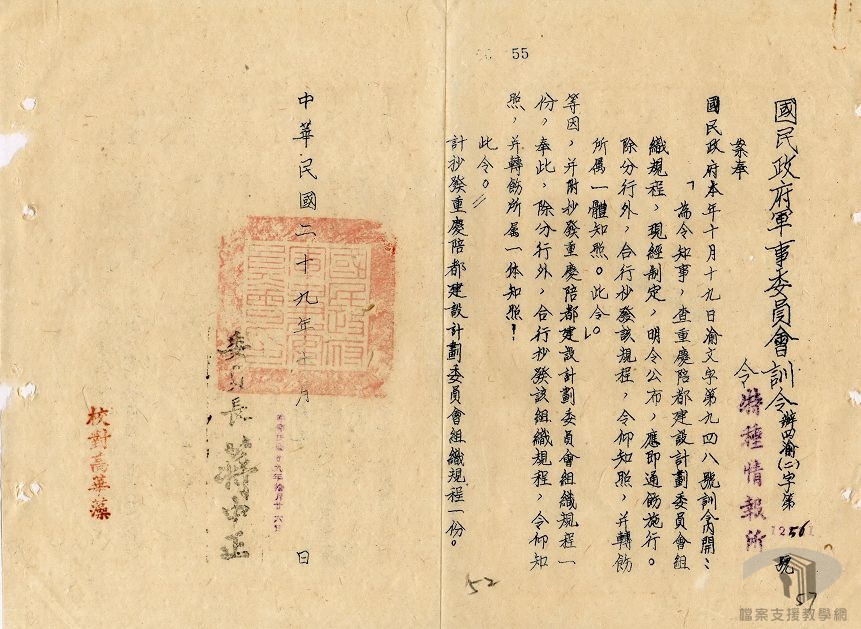 55
國民政府軍事委員會訓令 辦四渝(二)字第1256號
令特種情報所
案奉
國民政府本年十月十九日渝文字第九四八號訓令內開：
「為令知事，查重慶陪都建設計劃委員會組
織規程，現經制定，明令公布，應即通飭施行。
除分行外，合行抄發該規程，令仰知照，并轉飭
所屬一體知照。此令。」
等因，并附抄發重慶陪都建設計劃委員會組織規程一
份，奉此，除分行外，合行抄發該組織規程，令仰知
照，并轉飭所屬一体知照！
此令。
計抄發重慶陪都建設計劃委員會組織規程一份。
中華民國二十九年十月 日
委員長 蔣中正
校對高華藻
52
57
檔案支援教學網